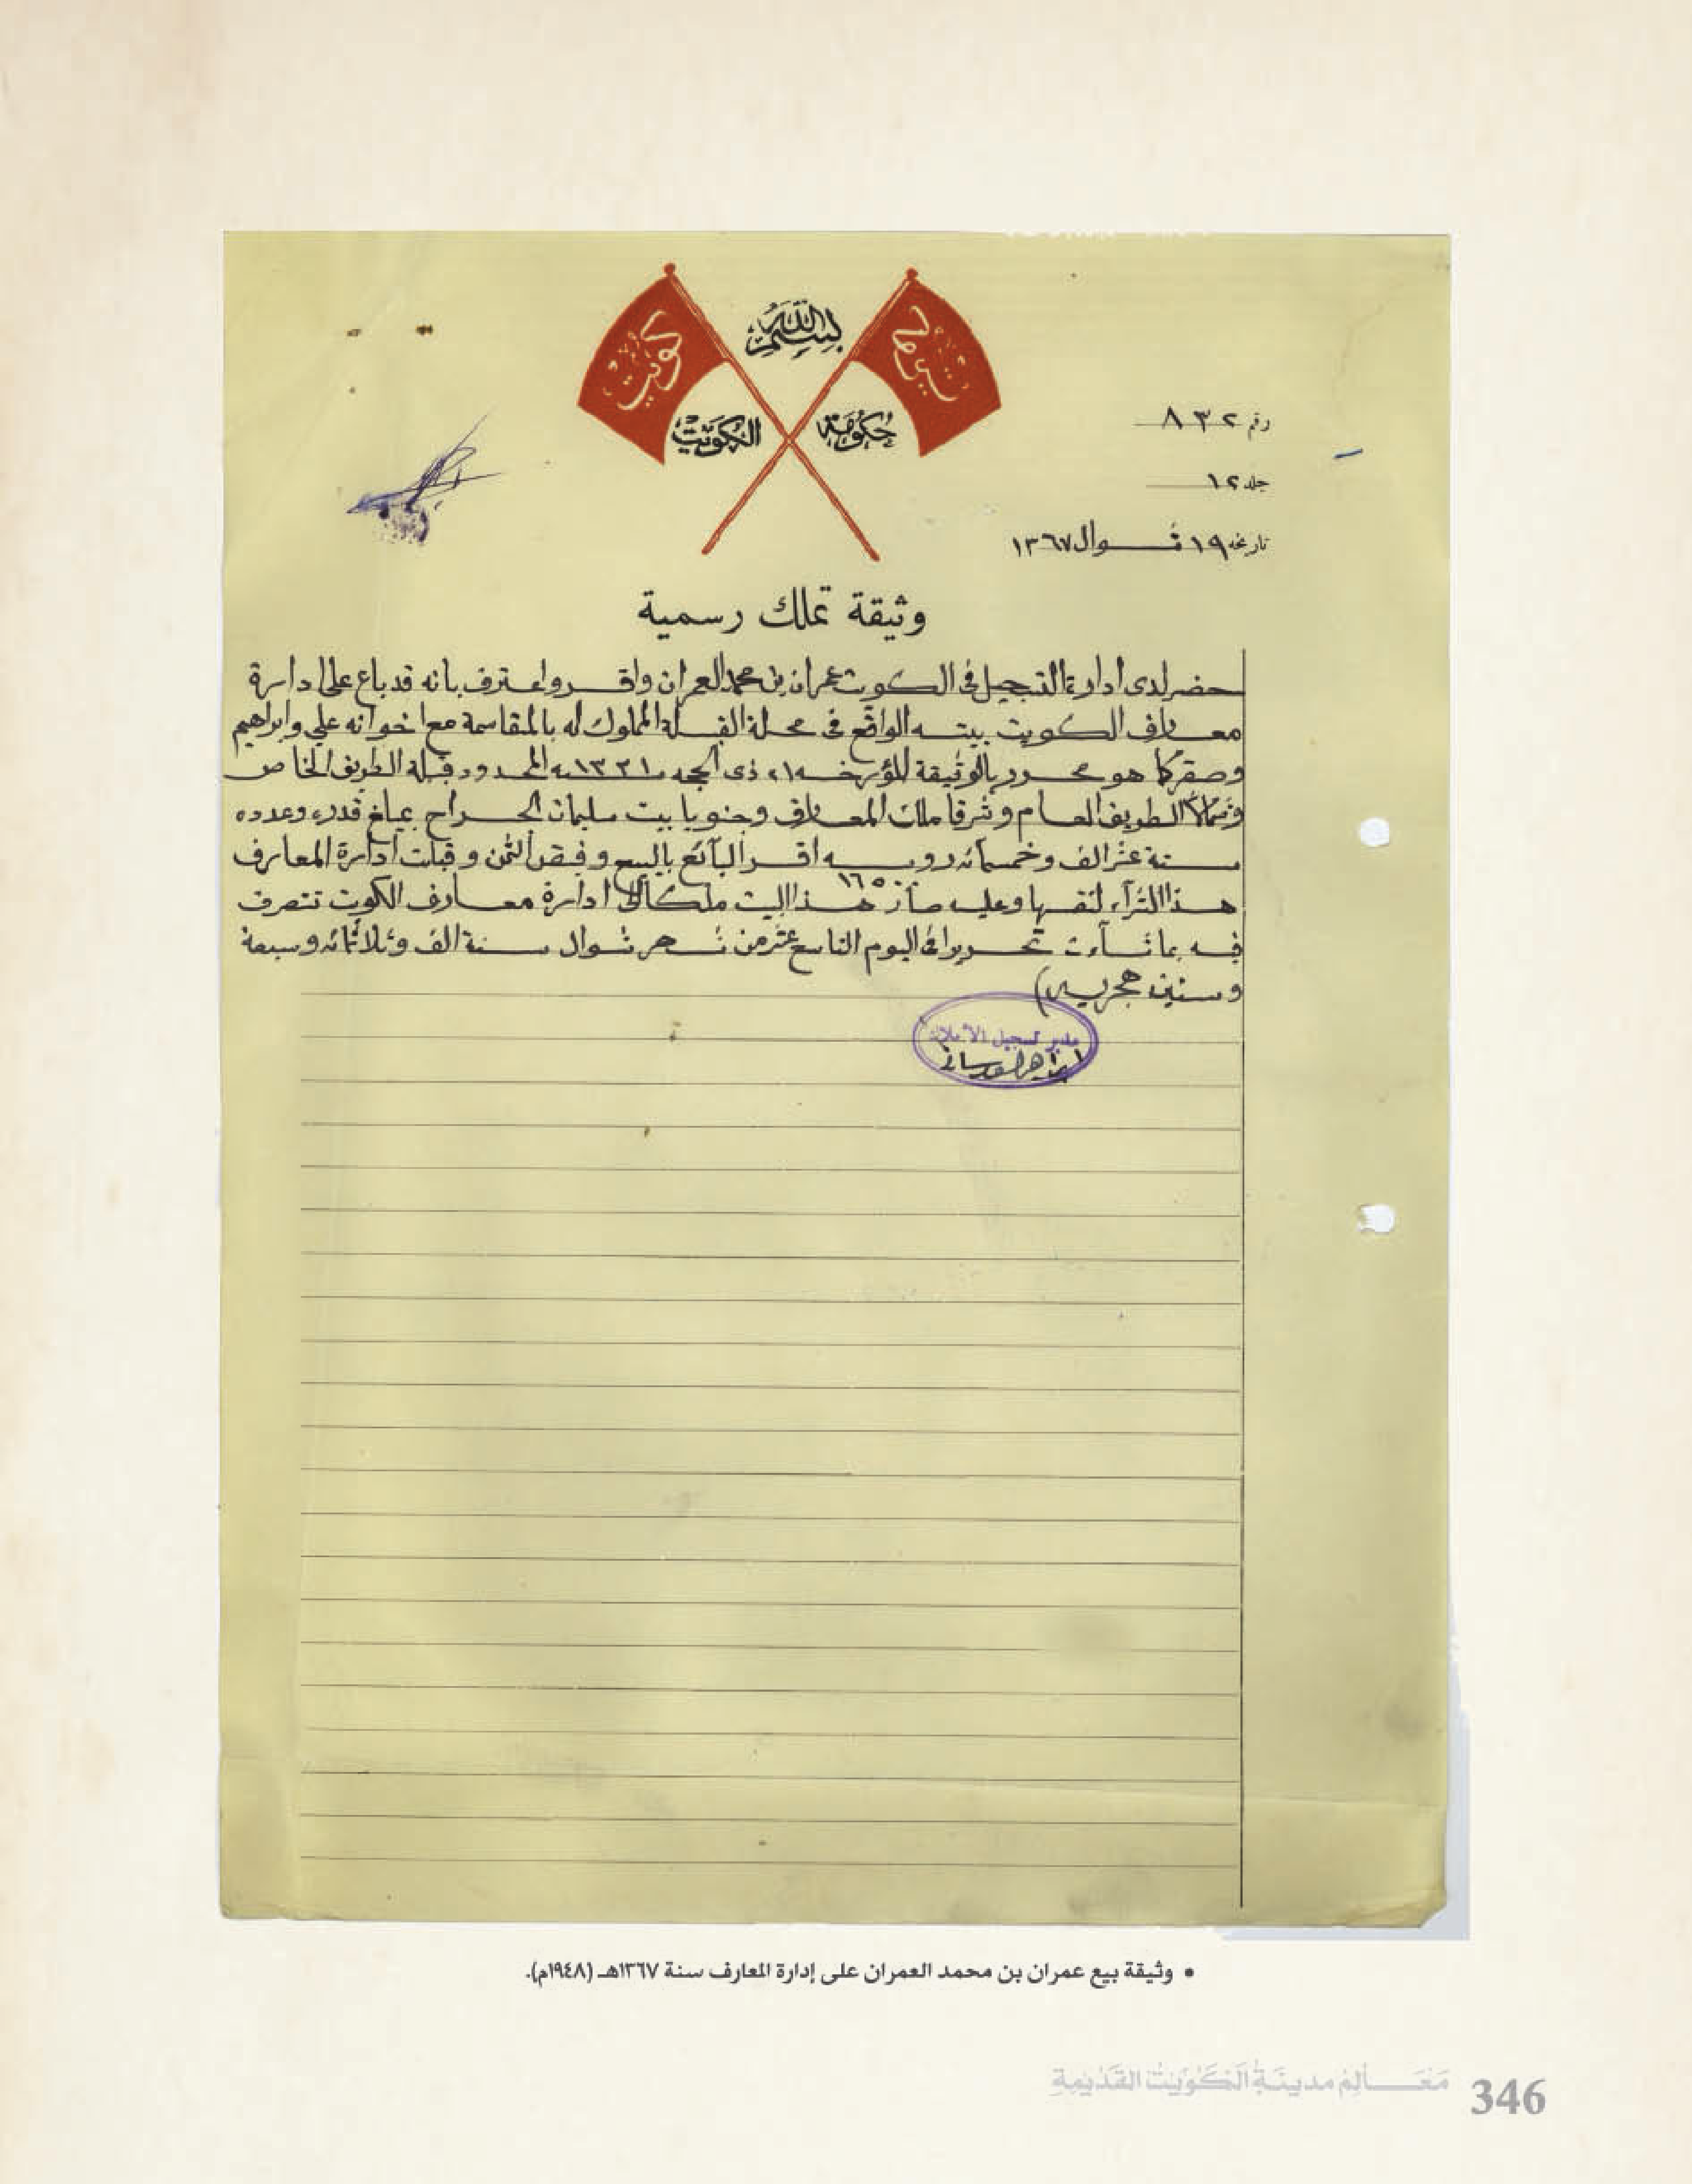 بسم الله
كويت
كويت
حكومة الكويت
رقم ٨٣٢
جلد ١٢
تاريخه ١٩ شوال ١٣٦٧
وثيقة تملك رسمية
حضر لدى ادارة التسجيل في الكويت عمران بن محمد العمران واقر واعترف بانه قد باع على دائرة
معارف الكويت بيته الواقع في محلة القبلة المملوك له بالمقاسمة مع اخوانه علي وابراهيم
وصقر كما هو محرر بالوثيقة المؤرخه ذي الحجه المحدود قبلة الطريق الخاص
وشمالا الطريق العام وشرقا ملك المعارف وجنوبا بيت سليمان الجراح بمبلغ قدره وعدده
ستة عشر الف وخمسمائه روبيه اقر البائع بالبيع وقبض الثمن وقبلت ادارة المعارف
١٦٥
هذا الشرآء لنفسها وعليه صار هذا البيت ملكا الى ادارة معارف الكويت تتصرف
فيه بما شآءت تحريرا في اليوم التاسع عشر من شهر شوال سنة الف وثلاثمائه وسبعة
وستين هجريه)
مدير تسجيل الأملاك
• وثيقة بيع عمران بن محمد العمران على إدارة المعارف سنة ١٣٦٧هـ (١٩٤٨م).
مَعَالِمُ مدينَةِ الكُوَيْتِ القَدِيمَةِ 346